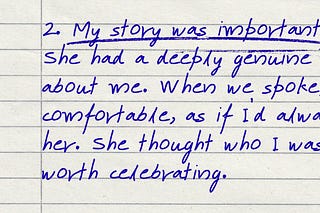 2. My story was important
She had a deeply genuine
about me. When we spoke
comfortable, as if I'd alwa
her. She thought who I was
worth celebrating.